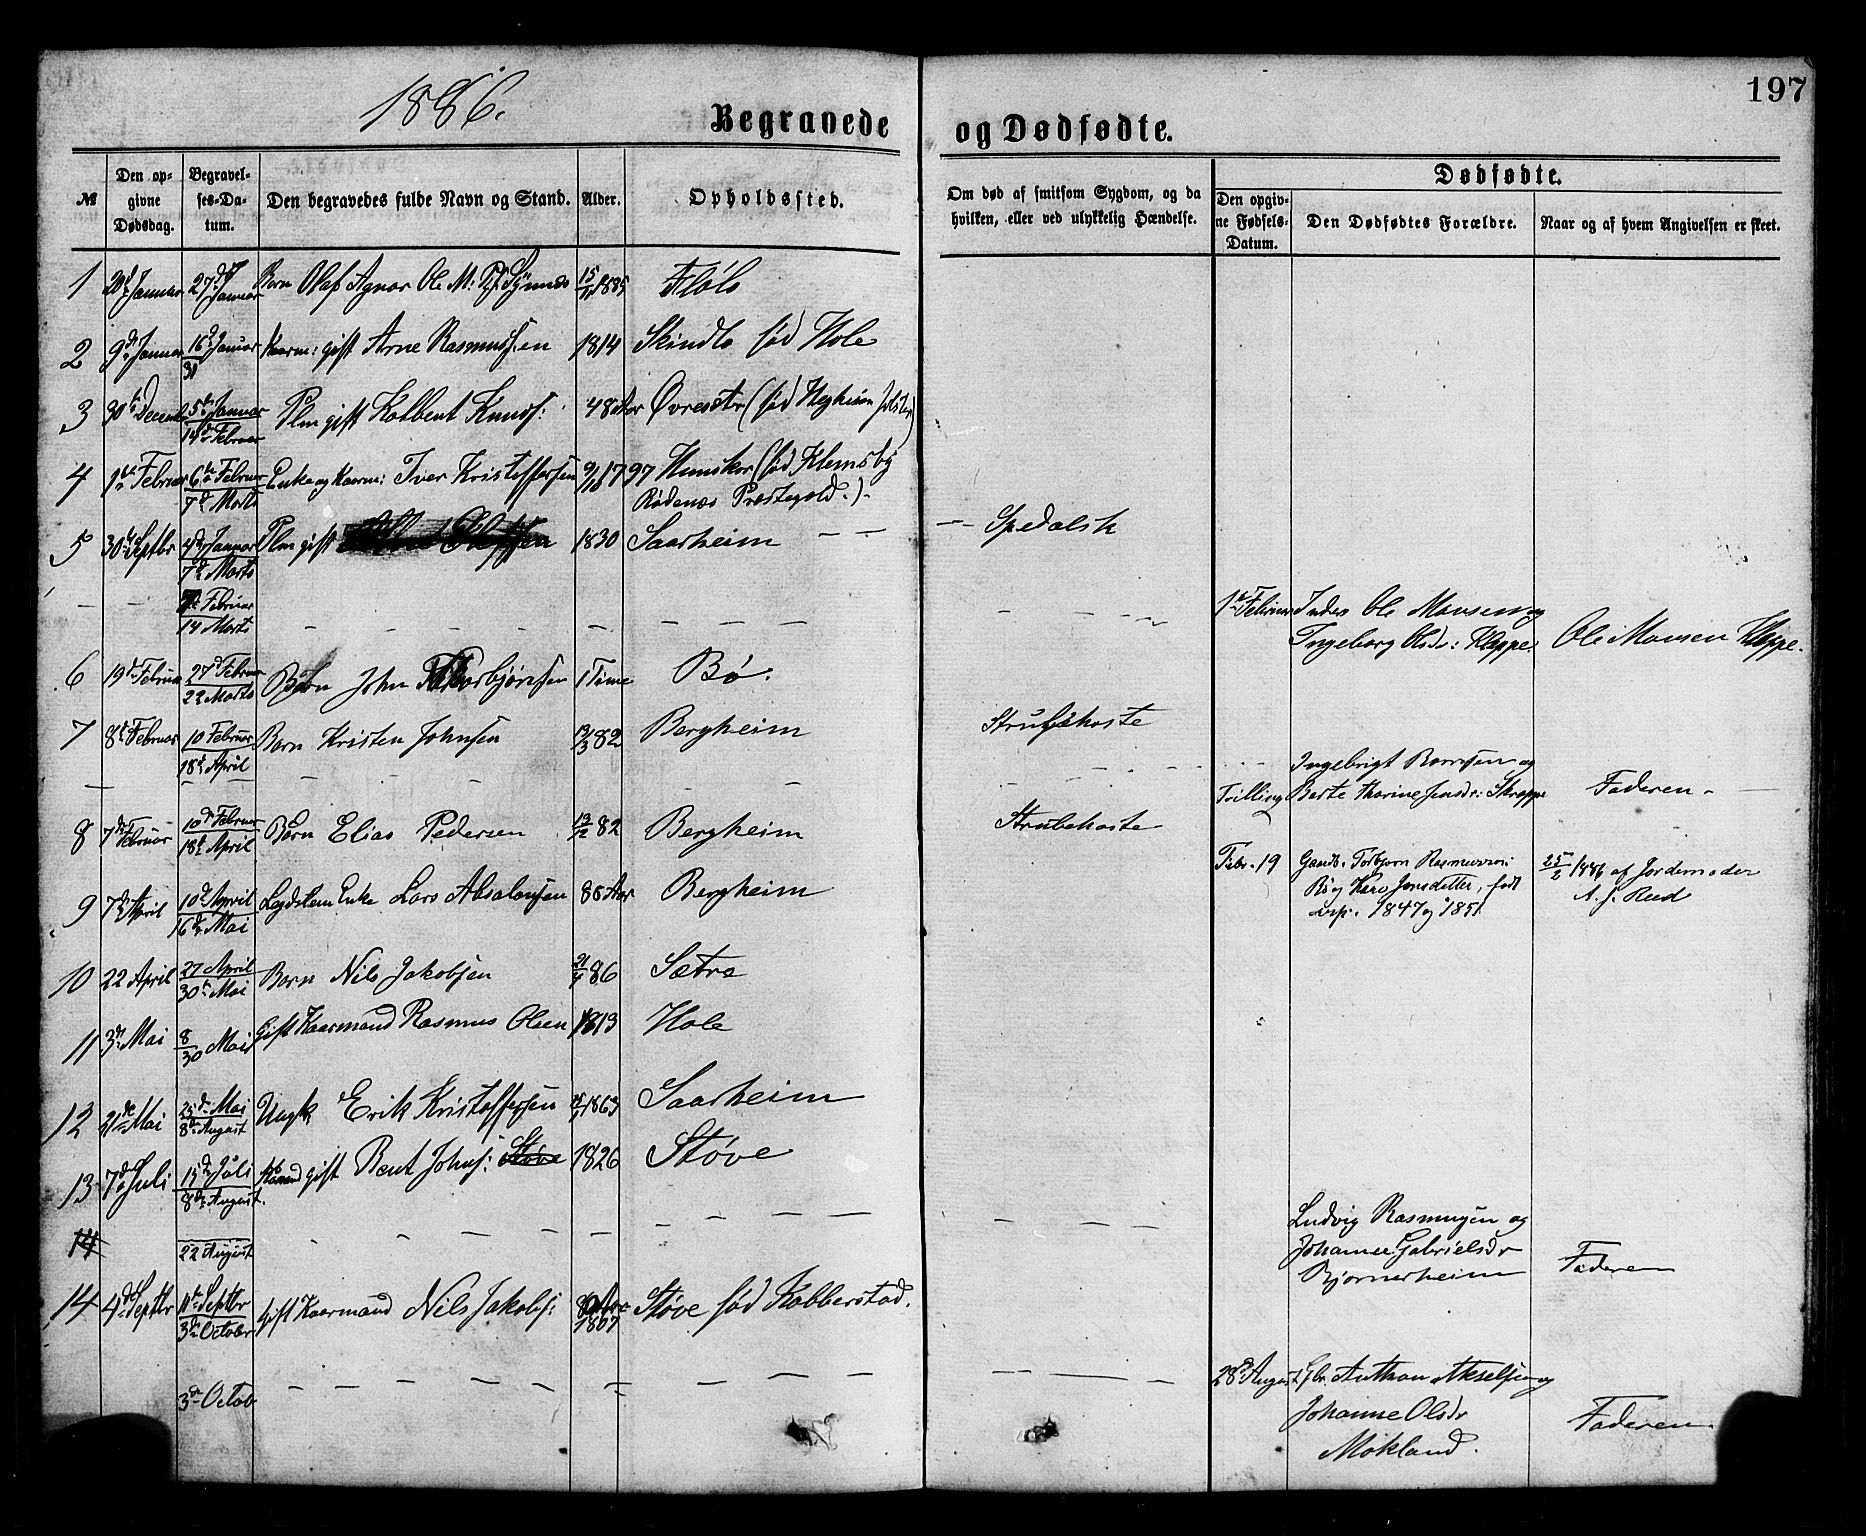 197
1886.
Begravede og Dødfødte.
№
Den op-
givne
Dødsdag.
Begravel-
ses-Da-
tum.
Den begravedes fulde Navn og Stand.
Alder.
Opholdssted.
Om død af smitsom Sygdom, og da
hvilken, eller ved ulykkelig Hændelse.
Dødfødte.
Den opgiv-
ne Fødsels-
Datum.
Den Dødfødtes Forældre.
Naar og af hvem Angivelsen er skeet.
1 Januar 27de Januar Barn Olaf Agnar Ole M: 15/11 1885 Flølo
2 9de Januar 16de Januar/31 Kaarm: gift Arne Rasmussen 1814 Skindlo fød Hole
3 30te Decemb 5te Januar/14de Februar Plm gift Kolbent Knuds: 48 Aar Øvresetr (fød Jølster)
4 1ste Februar 6te Februar/7de Marts Enke og Kaarm: Iver Kristoffersen 9/10 1797 Hunskor (fød Klemsby
Rødenæs Præstegjeld.)
5 30te Septbr Januar/7de Marts Plm gift 1830 Saarheim — — — Spedalsk
— — Februar/14 Marts — — — — — — — 1ste Februar Inders Ole Monsen og
Ingeborg Olsdr: Kleppe Ole Monsen Kleppe.
6 19de Februar 27de Februar/22 Marts Børn John Torbjørnsen 1 Time Bø.
7 8de Februar 10 Februar/18de April Barn Kristen Johnsen 82 Bergheim Strubehoste
— — — — — — — — Tvilling Ingebrigt og
Berte Karine Jensdr: Skroppe Faderen —
8 7de Februar 10de Februar/18de April Børn Elias Pedersen 82 Bergheim Strubehoste
Febr. 19 Gaardb. Torbjørn Rasmussen
Bø og Kari Jonsdatter, født
resp. 1847 og 1851
25/2 1886 af Jordemoder
A. J. Reed
9 7de April 10de April/16de Mai Enke Lars Absalonsen 85 Aar Bergheim
10 22 April 27 April/30te Mai Barn Nils Jakobsen 21/4 86 Sætre
11 3de Mai 8/30 Mai Gift Kaarmand Rasmus Olsen 1813 Hole
12 21de Mai 25de Mai/8de August Ungk Erik Kristoffersen 1863 Saarheim
13 7de Juli 15de Juli/8de August Kaarmand gift Bent Johns: Støve 1826 Støve
14 22 August — — — — — — — — — — Ludvig Rasmussen og
Johanne Gabrielsdr
Bjørnerheim Faderen
14 4de Septbr 11te Septbr/3de October Gift Kaarmand Nils Jakobs: 1807 Støve fød Kobberstad.
3de Octob — — — — — — — — — — 28de August Anthon Akselsen og
Johanne Olsdr
Mokland. Faderen.